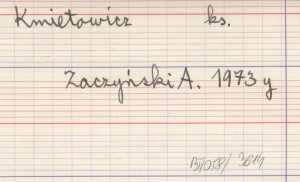 Kmietowicz ks.
Zaczyński A. 1973 y